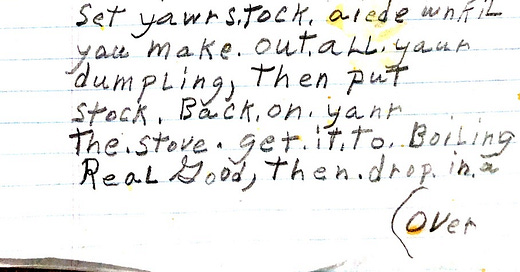 Set yawr s.tock. aiede wnkil
you make. out. all. yaur
dumpling, Then put
stock. Back. on. yanr
The. stove. get. it. to. Boiling
Real Good, Then. drop. in. a
(over